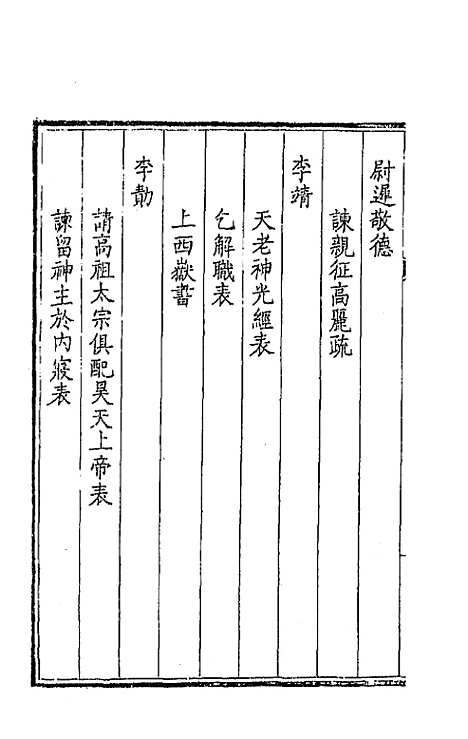 尉遲敬德
諫親征高麗疏
李靖
天老神光經表
乞解職表
上西嶽書
李勣
請高祖太宗俱配昊天上帝表
諫留神主於內寢表